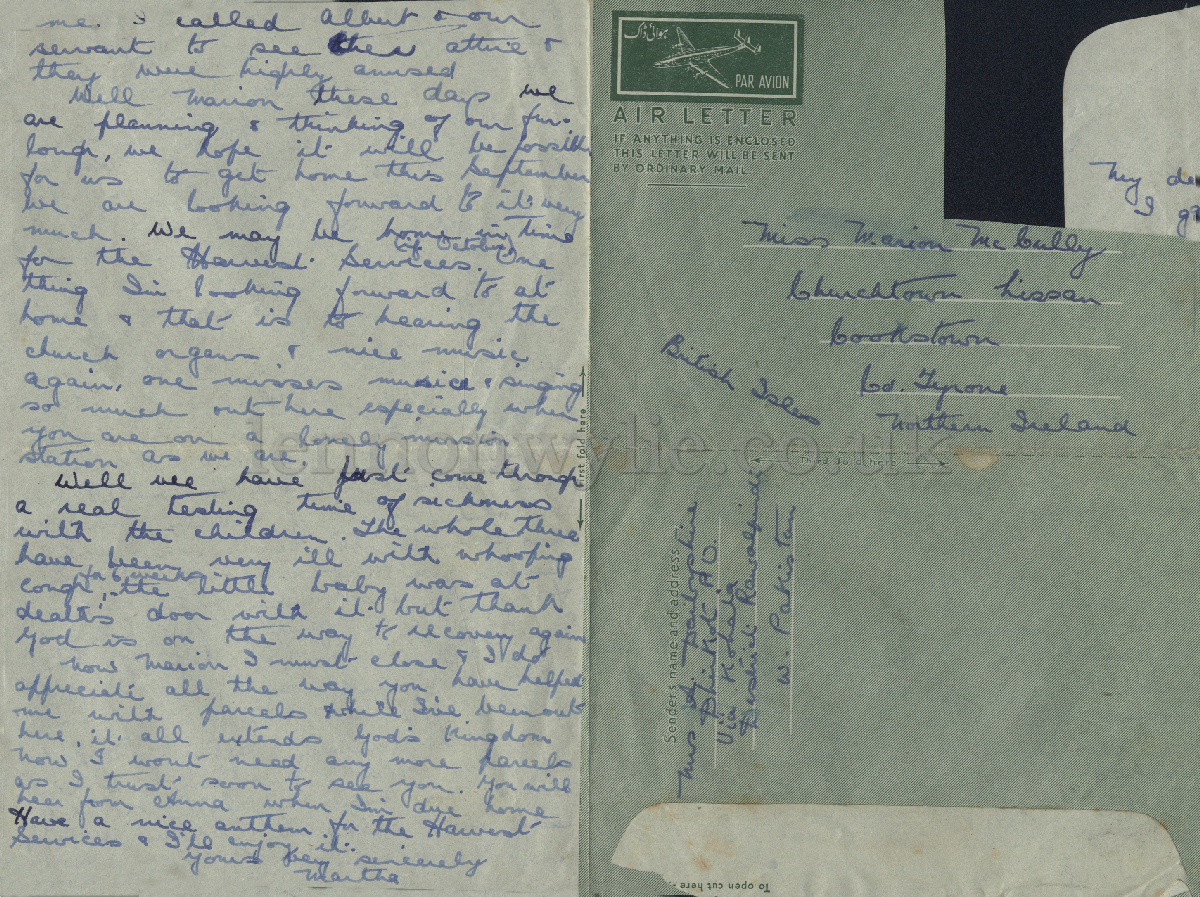 me. I called Albert & our
servant to see the attire &
they were highly amused
Well Marion these days we
are planning & thinking of our fur-
lough, we hope it will be possible
for us to get home this September
we are looking forward to it very
much. We may be home in time
for the Harvest Services. (of October) One
thing I'm looking forward to at
home & that is to hearing the
church organs & nice music
again, one misses music & singing
so much out here especially when
you are on a lonely mission
station as we are
Well we have just come through
a real testing time of sickness
with the children. The whole three
have been very ill with whooping
cough, for 6 weeks the little baby was at
death's door with it but thank
God is on the way to recovery again
Now Marion I must close & I do
appreciate all the way you have helped
me with parcels while I've been out
here, it all extends God's Kingdom
Now I wont need any more parcels
as I trust soon to see you. You will
hear from Anna when I'm due home
Have a nice anthem for the Harvest
Services & I'll enjoy it.
yours very sincerely
Martha
ہوائی ڈاک
PAR AVION
AIR LETTER
IF ANYTHING IS ENCLOSED
THIS LETTER WILL BE SENT
BY ORDINARY MAIL
My de
I g
Miss Marion McCully
Churchtown Lissan
Cookstown
Co. Tyrone
Northern Ireland
British Isles
First fold here
here
lennonwylie.co.uk
Sender's name and address:
Mrs
Phirkot P.O.
Via Kohala
District Rawalpindi
W. Pakistan
To open cut here